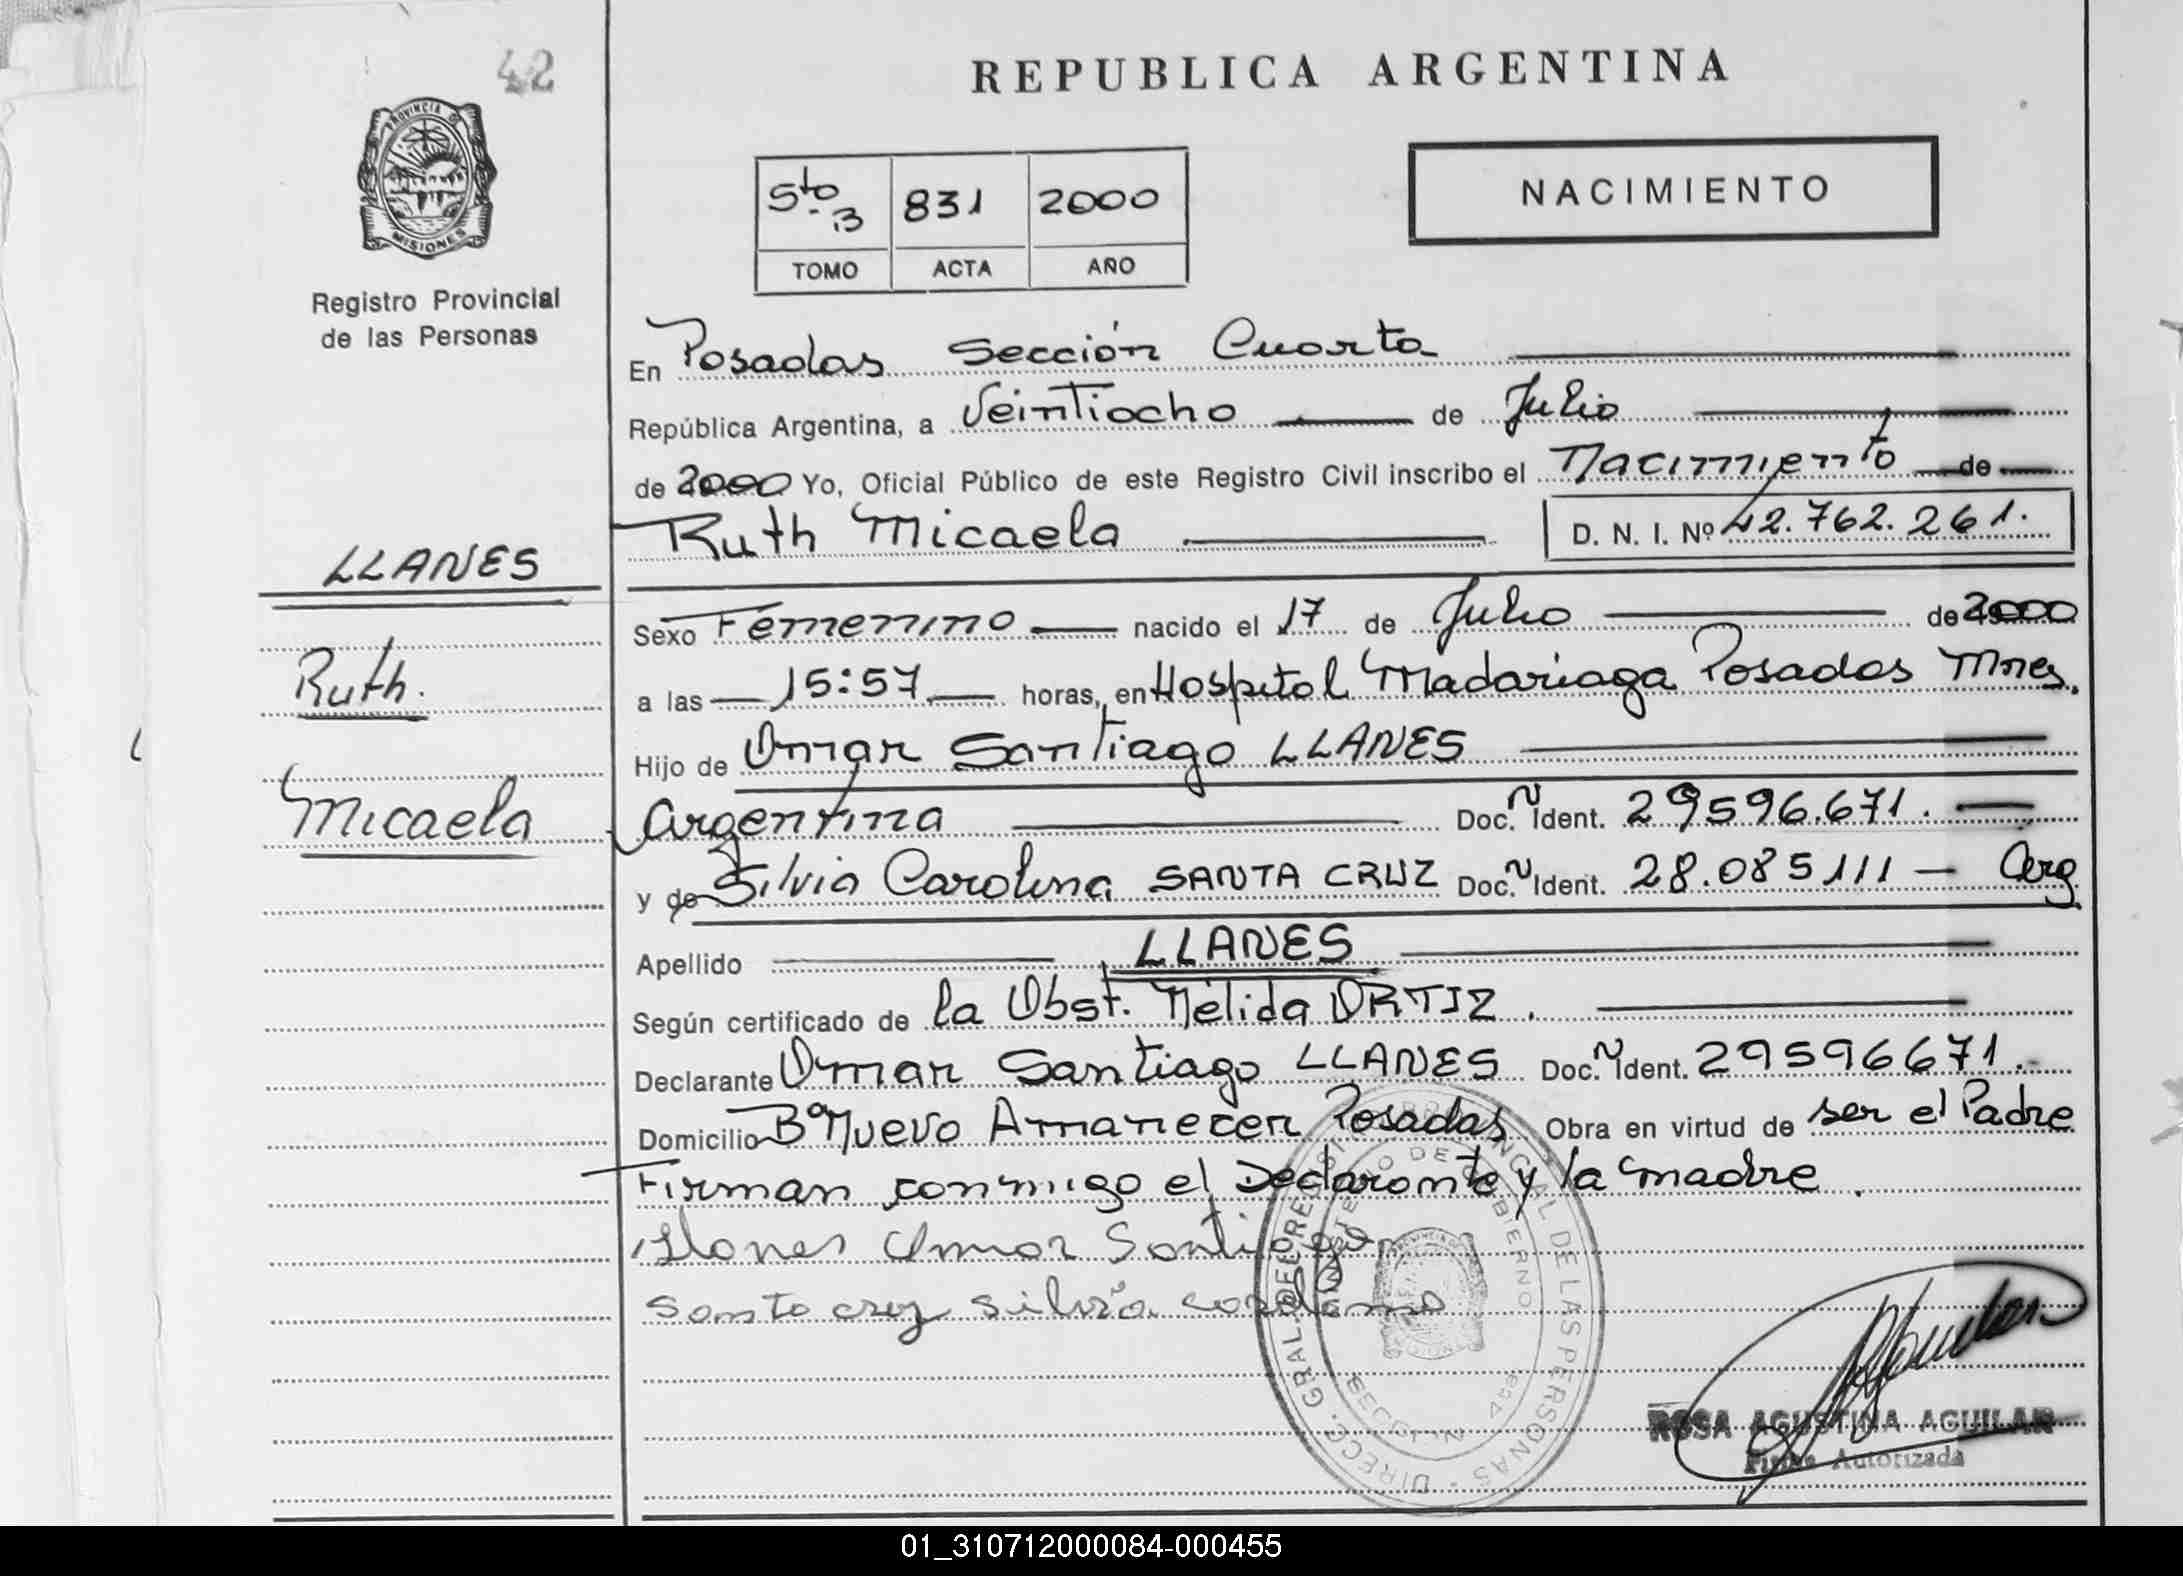 42
REPUBLICA ARGENTINA
PROVINCIA DE
MISIONES
Registro Provincial
de las Personas
5to B 831 2000
TOMO ACTA AÑO
NACIMIENTO
En Posadas Sección Cuarta
República Argentina, a Veintiocho de Julio
de 2000 Yo, Oficial Público de este Registro Civil inscribo el Nacimiento de
Ruth Micaela D. N. I. Nº 42.762.261.
LLANES
Ruth.
Micaela
Sexo Femenino nacido el 17 de Julio de 2000
a las 15:57 horas, en Hospital Madariaga Posadas Mnes.
Hijo de Omar Santiago LLANES
Argentina Doc. Ident. 29596.671.
y de Silvia Carolina SANTA CRUZ Doc. Ident. 28.085111 - Arg
Apellido LLANES
Según certificado de la Obst. Nélida ORTIZ.
Declarante Omar Santiago LLANES Doc. Ident. 29596671.-
Domicilio Bº Nuevo Amanecer Posadas Obra en virtud de ser el Padre
Firman conmigo el Declarante y la madre.
Llanes Omar Santiago
Santa cruz silvia carolina
DIRECC. GRAL. DEL REGISTRO PROVINCIAL DE LAS PERSONAS
MINISTERIO DE GOBIERNO
SECCION 4ta
ROSA AGUSTINA AGUILAR
Firma Autorizada
01_310712000084-000455